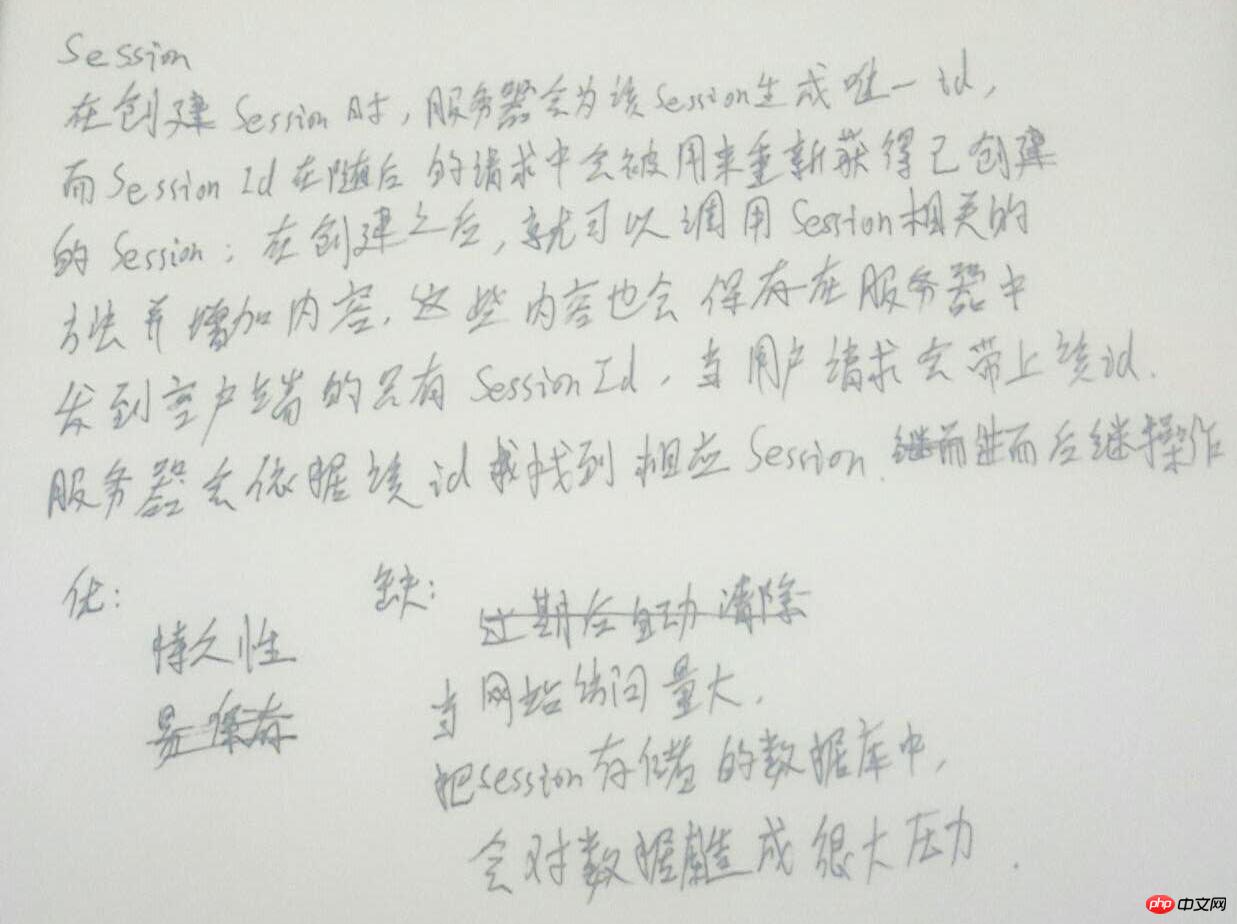 Session
在创建Session时，服务器会为该Session生成唯一id，
而Session Id在随后的请求中会被用来重新获得已创建
的Session；在创建之后，就可以调用Session相关的
方法并增加内容，这些内容也会保存在服务器中
发到客户端的只有SessionId，当用户请求会带上该id.
服务器会依据该id找到相应Session. 继而进而后继操作
优：
持久性
易保存
缺：
过期后自动清除
当网站访问量大，
把session存储的数据库中，
会对数据库造成很大压力.
php中文网